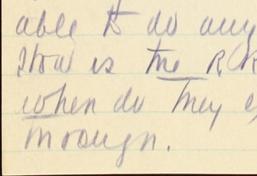 able to do any
How is the R.R
when do they e
through.